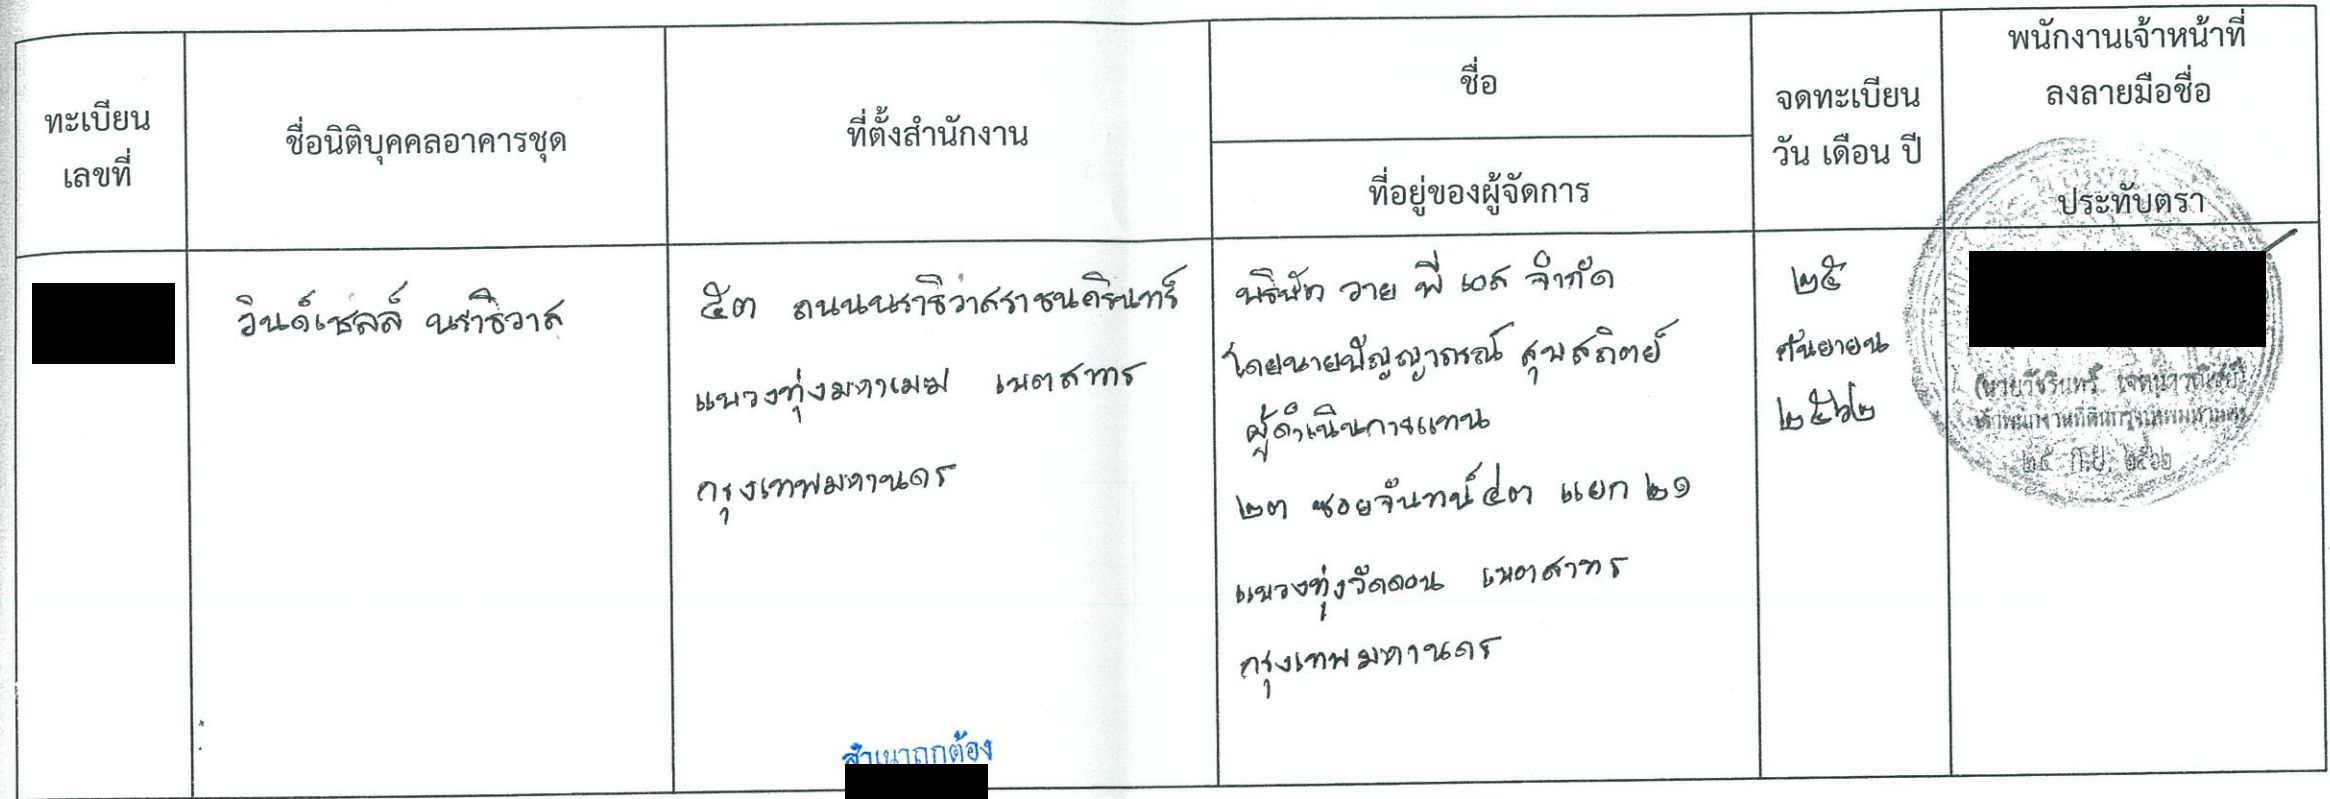 ทะเบียน
เลขที่
ชื่อนิติบุคคลอาคารชุด
ที่ตั้งสำนักงาน
ชื่อ
ที่อยู่ของผู้จัดการ
จดทะเบียน
วัน เดือน ปี
พนักงานเจ้าหน้าที่
ลงลายมือชื่อ
ประทับตรา
วินด์เชลล์ นราธิวาส
๕๓ ถนนนราธิวาสราชนครินทร์
แขวงทุ่งมหาเมฆ เขตสาทร
กรุงเทพมหานคร
บริษัท วาย พี เอส จำกัด
โดยนายปัญญาภรณ์ สุขสถิตย์
ผู้ดำเนินการแทน
๒๓ ซอยจันทน์ ๔๓ แยก ๒๑
แขวงทุ่งวัดดอน เขตสาทร
กรุงเทพมหานคร
๒๕
กันยายน
๒๕๖๒
เจ้าพนักงานที่ดินกรุงเทพมหานคร
๒๕ ก.ย. ๒๕๖๒
สำเนาถูกต้อง